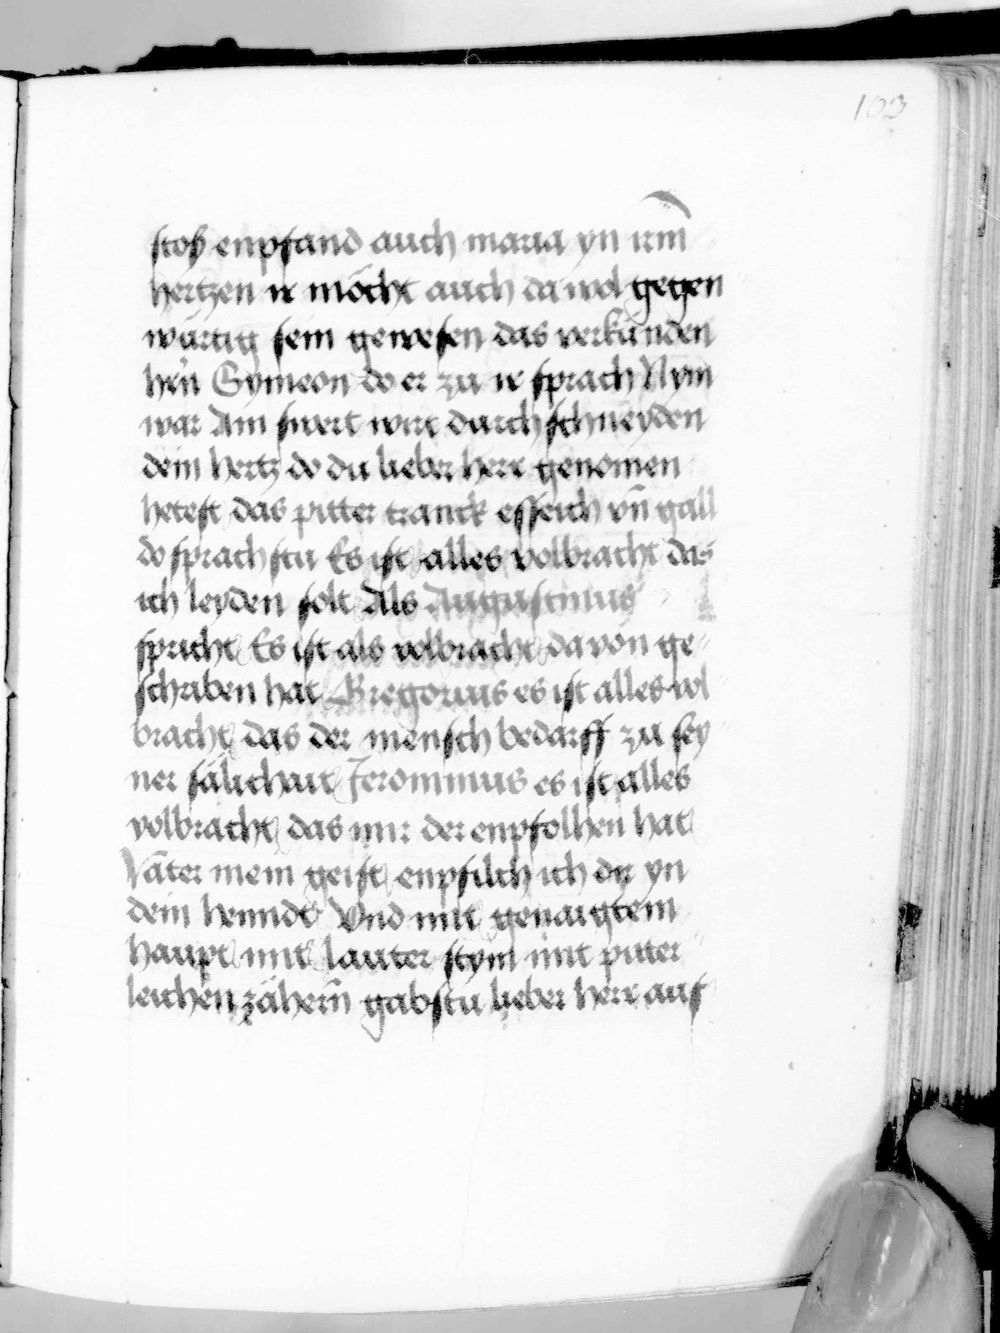 103
stoß enpfand auch maria yn irm̄
hertzen ir möcht auch da wol gegen
würtig sein gewesen das verkünden
hern̄ Symeon do er zu ir sprach Nym
war Ain swert wirt durch schneyden
dein hertz do du lieber herr genomen
hetest das pitter tranck esseich vn̄ gall
do sprach stu Es ist alles volbracht das
ich leyden solt Als Augustinus
spricht Es ist als volbracht da von ge
schriben hat Gregorius es ist alles vol
bracht das der mensch bedarff zu sey
ner sälichait Jeronimus es ist alles
volbracht das mir der enpfolhen hat
Vater mein geist enpfilch ich dir yn
dein henndt Vnd mit genaigtem
haupt mit lauter stym mit pitter
leichen zähern̄ gabstu lieber herr auf